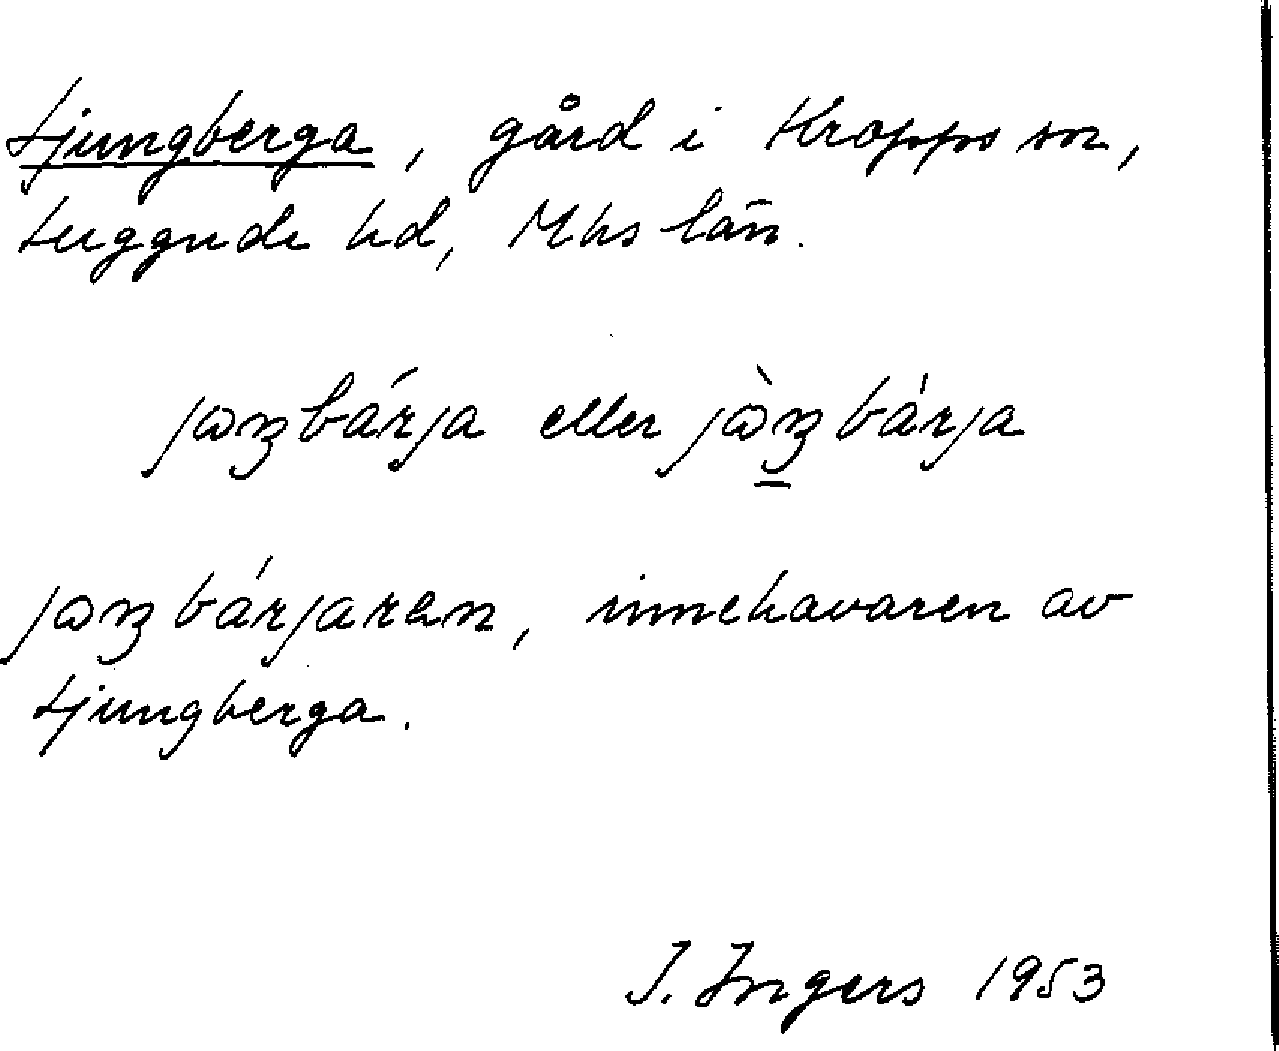 Ljungberga, gård i Kropps sn,
Luggude hd, Mhs län.
jωŋbárja eller jὼŋbárja
jωŋbárjaren, innehavaren av
Ljungberga.
I. Ingers 1953